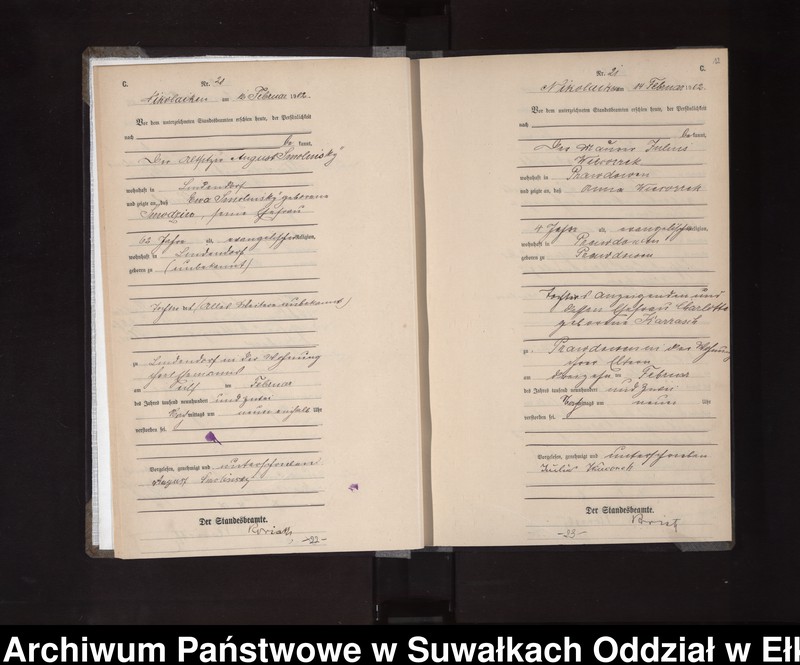 C.
Nr. 21
Nikolaiken am Februar 1902.
Vor dem unterzeichneten Standesbeamten erschien heute, der Persönlichkeit
nach
be kannt,
Der Altsitzer August Smolinsky
wohnhaft in Lindendorf
und zeigte an, daß Ewa Smolinsky geborene
seine Ehefrau
62 Jahre alt, evangelischer Religion,
wohnhaft in Lindendorf
geboren zu (unbekannt)
Tochter des (Alles Weitere unbekannt)
zu Lindendorf in der Wohnung
ihres Ehemanns
am Februar
des Jahres tausend neunhundert und zwei
Vormittags um Uhr
verstorben sei.
Vorgelesen, genehmigt und unterschrieben
August
Der Standesbeamte.
-22-
Nr. 21
C.
Nikolaiken am 14 Februar 1902.
Vor dem unterzeichneten Standesbeamten erschien heute, der Persönlichkeit
nach
be kannt,
Der Maurer Julius
wohnhaft in Prawdowen
und zeigte an, daß Anna
4 Jahre alt, evangelischer Religion,
wohnhaft in Prawdowen
geboren zu Prawdowen
Tochter des Anzeigenden und
dessen Ehefrau Charlotte
geborene
zu Prawdowen in der Wohnung
ihrer Eltern
am Februar
des Jahres tausend neunhundert und zwei
mittags um neun Uhr
verstorben sei.
Vorgelesen, genehmigt und unterschrieben
Julius
Der Standesbeamte.
-23-
Archiwum Państwowe w Suwałkach Oddział w Eł